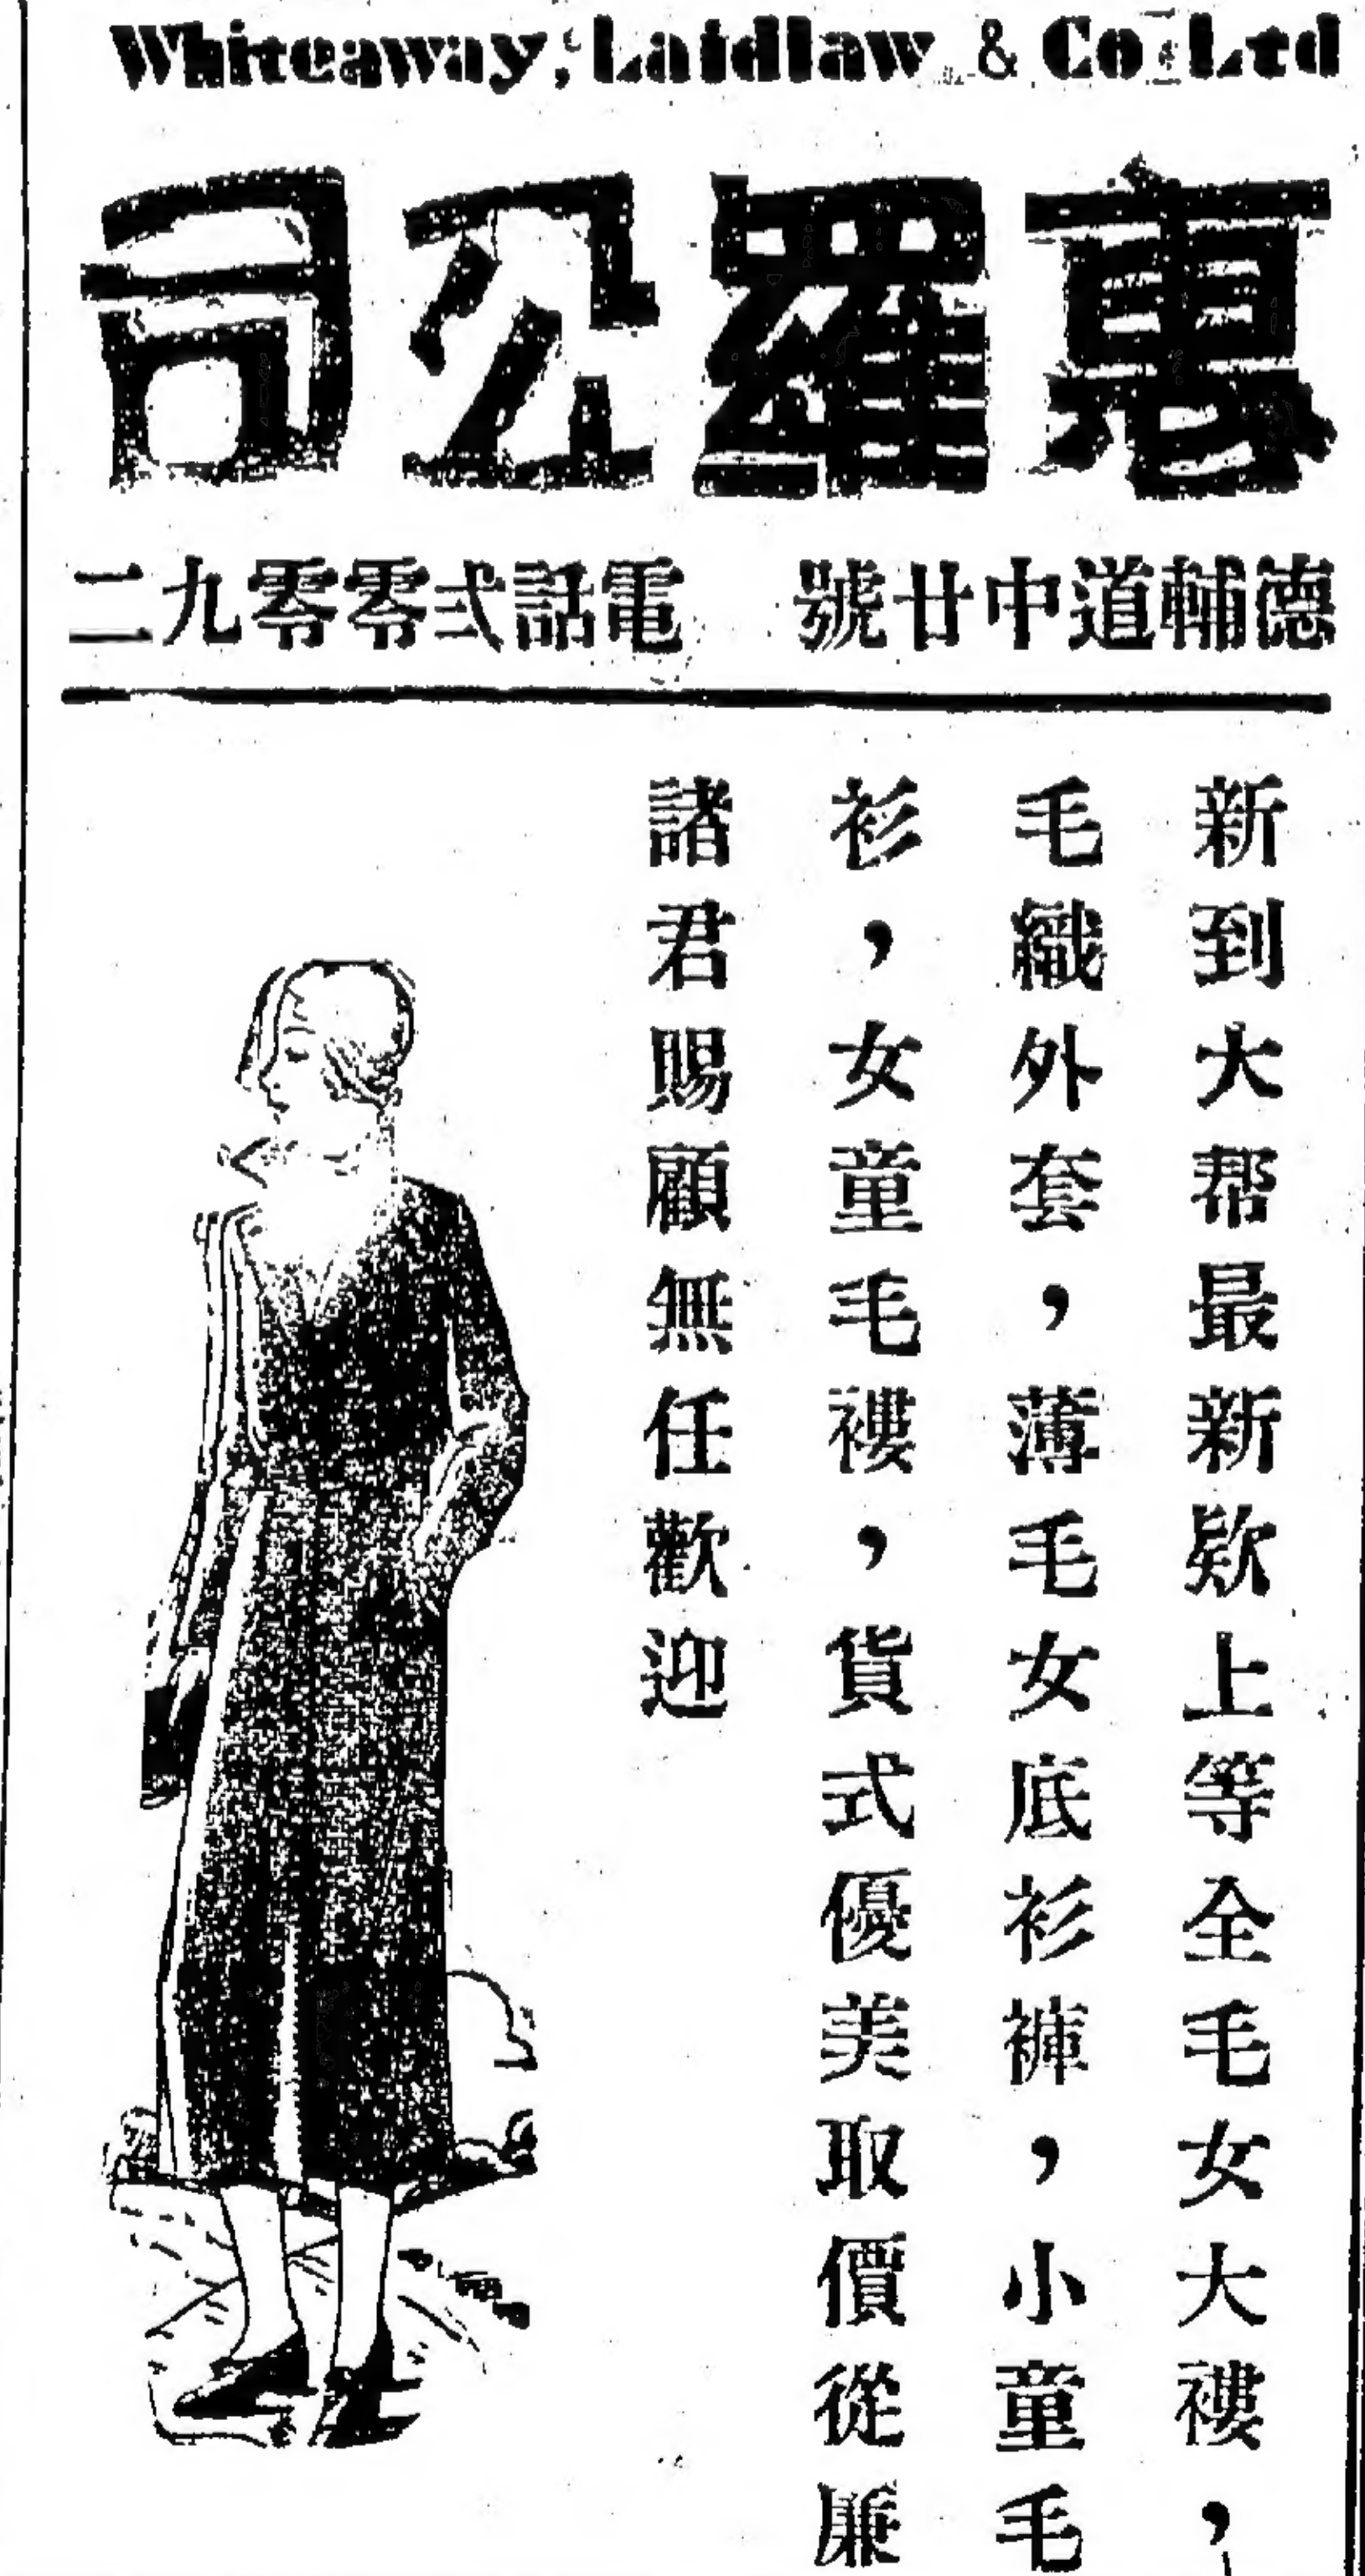 Whiteaway, Laidlaw & Co Ltd
惠羅公司
德輔道中廿號　電話弍零零九二
新到大帮最新欵上等全毛女大褸，
毛織外套，薄毛女底衫褲，小童毛
衫，女童毛褸，貨式優美取價從廉
諸君賜顧無任歡迎